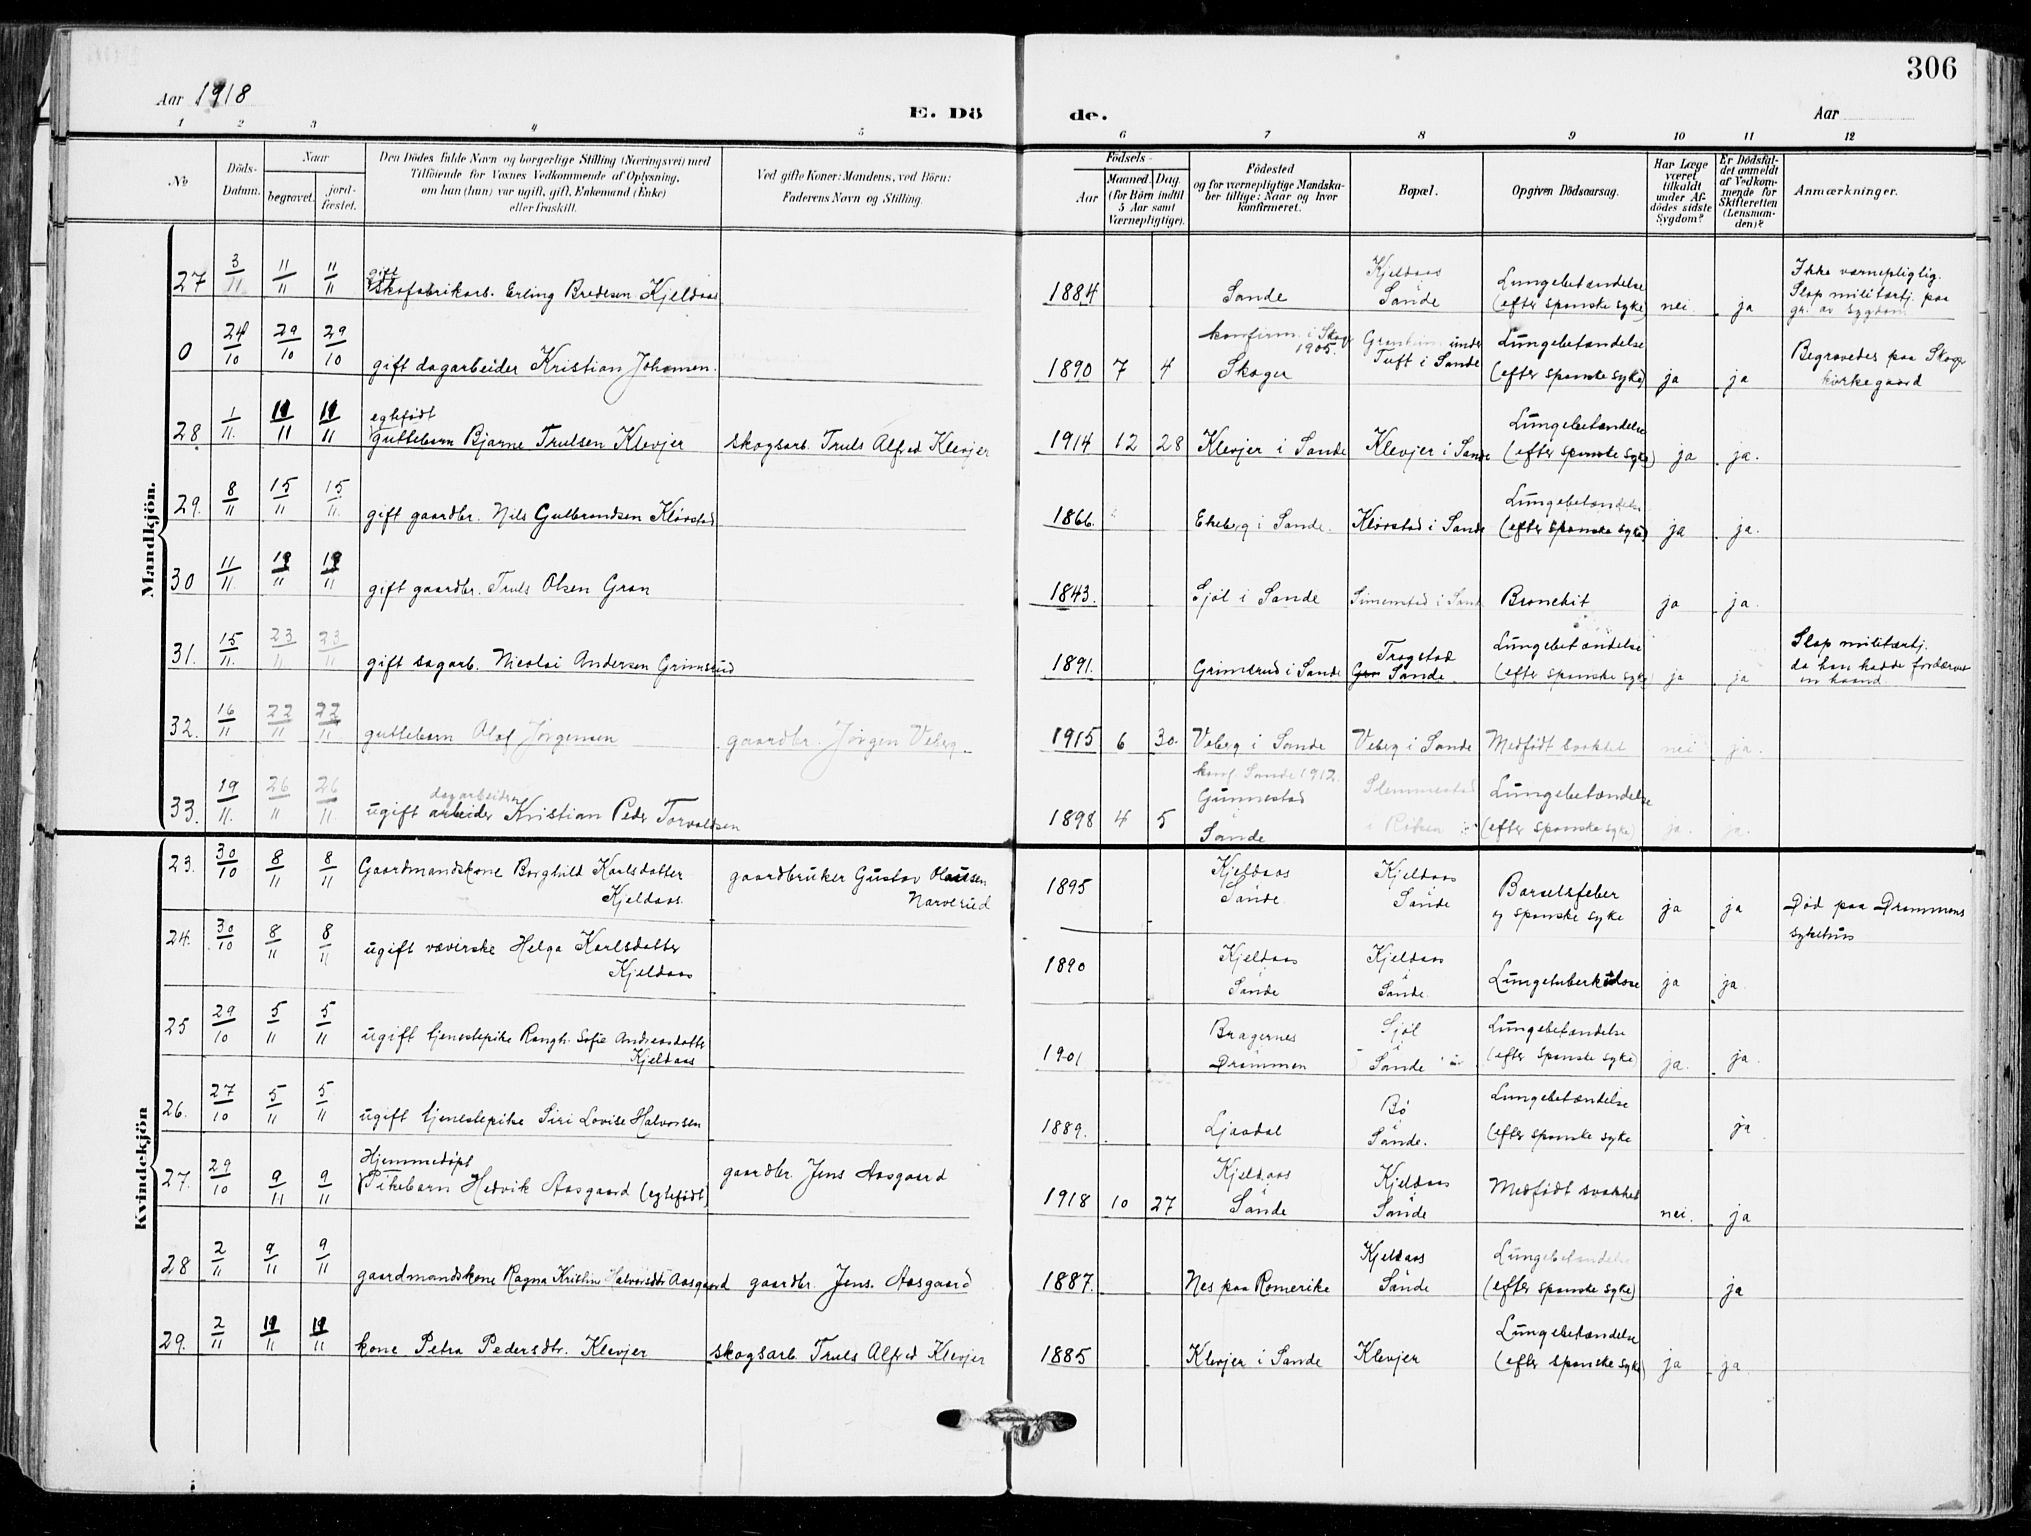 306
Aar 1918
E. Döde.
Aar
1 2 3 4 5 6 7 8 9 10 11 12
No
Döds-Datum.
Naar
begravet.
jord-fæstet.
Den Dödes fulde Navn og borgerlige Stilling (Næringsvei) med
Tilföiende for Voxnes Vedkommende af Oplysning,
om han (hun) var ugift, gift, Enkemand (Enke)
eller fraskilt.
Ved gifte Koner: Mandens, ved Börn:
Faderens Navn og Stilling.
Födsels-
Aar
Maaned. Dag.
(for Börn indtil
5 Aar samt
Værnepligtige).
Födested
og for værnepligtige Mandska-
ber tillige: Naar og hvor
konfirmeret.
Bopæl.
Opgiven Dödsaarsag.
Har Læge
været
tilkaldt
under Af-
dödes sidste
Sygdom?
Er Dödsfal-
det anmeldt
af Vedkom-
mende for
Skifteretten
(Lensman-
den)?
Anmærkninger.
Mandkjön.
27 3/11 11/11 11/11 gift skofabrikarb. Erling Bredesen Kjeldaas 1884 Sande Kjeldaas Sande Lungebetændelse (efter spanske syke) nei. ja Ikke værnepligtig. Slap militærtj. paa gr. av sygdom
0 24/10 29/10 29/10 gift dagarbeider Kristian Johansen. 1890 7 4 konfirm. i Skog. 1905. Skoger under Tuft i Sande Lungebetændelse (efter spanske syke) ja ja Begravedes paa Skoger kirkegaard
28. 1/11. 19/11 19/11 egtefödt guttebarn Bjarne Trulsen Klevjer skogsarb. Truls Alfred Klevjer 1914 12 28 Klevjer i Sande Klevjer i Sande Lungebetændelse (efter spanske syke) ja ja.
29. 8/11 15/11 15/11. gift gaardbr. Nils Gulbrandsen Klövstad 1866. Ekeberg i Sande. Klövstad i Sande Lungebetændelse (efter spanske syke) ja ja.
30 11/11 19/11 19/11 gift gaardbr. Truls Olsen Gran 1843. Sjöl i Sande i Sande Bronchit ja ja.
31. 15/11. 23/11 23/11 gift sagarb. Nicolai Andersen Grimsrud 1891. Grimsrud i Sande Trogstad Sande. Lungebetændelse (efter spanske syke) ja ja Slap militærtj. da han hadde fordærvet en haand
32. 16/11 22/11 22/11 guttebarn Olaf Jörgensen gaardbr. Jörgen Veberg. 1915 6 30. Veberg i Sande Veberg i Sande Medfödt svakhet nei ja.
33. 19/11. 26/11 26/11. ugift dagarbeider arbeider Kristian Peder Torvaldsen 1898 4 5 konf. Sande 1912. Gunnestad Sande Slemmestad i Röken Lungebetændelse (efter spanske syke) ja. ja.
Kvindekjön
23. 30/10 8/11 8/11 Gaardmandskone Borghild Karlsdatter Kjeldaas. gaardbruker Gustav Olausen Narverud 1895 Kjeldaas Sande. Kjeldaas Sande Barselsfeber og spanske syke ja ja Död paa Drammens sykehus
24. 30/10 8/11 8/11 ugift væverske Helga Karlsdatter Kjeldaas 1890 Kjeldaas Sande Kjeldaas Sande. Lungetuberkulose ja ja.
25 29/10 5/11 5/11 ugift tjenestepike Ragnh. Sofie Andreasdatter Kjeldaas 1901 Bragernes Drammen Sjöl Sande Lungebetændelse (efter spanske syke) ja. ja.
26. 27/10 5/11 5/11 ugift tjenestepike Siri Lovise Halvorsen 1889. Ljaadal Bö Sande. Lungebetændelse (efter spanske syke ja
27. 29/10 9/11 9/11 Hjemmedöpt Pikebarn Hedvik Aasgaard (egtefödt) gaardbr. Jens Aasgaard 1918 10 27 Kjeldaas Sande Kjeldaas Sande Medfödt svakhed nei. ja
28 2/11 9/11 9/11 gaardmandskone Ragna Kristine Halvorsdtr Aasgaard gaardbr. Jens Aasgaard 1887. Nes paa Romerike Kjeldaas Sande Lungebetændelse (efter spanske syke) ja
29. 2/11 19/11 19/11 kone Petra Pedersdtr. Klevjer skogsarb. Truls Alfred Klevjer 1885 Klevjer i Sande Klevjer Lungebetændelse (efter spanske syke) ja ja.